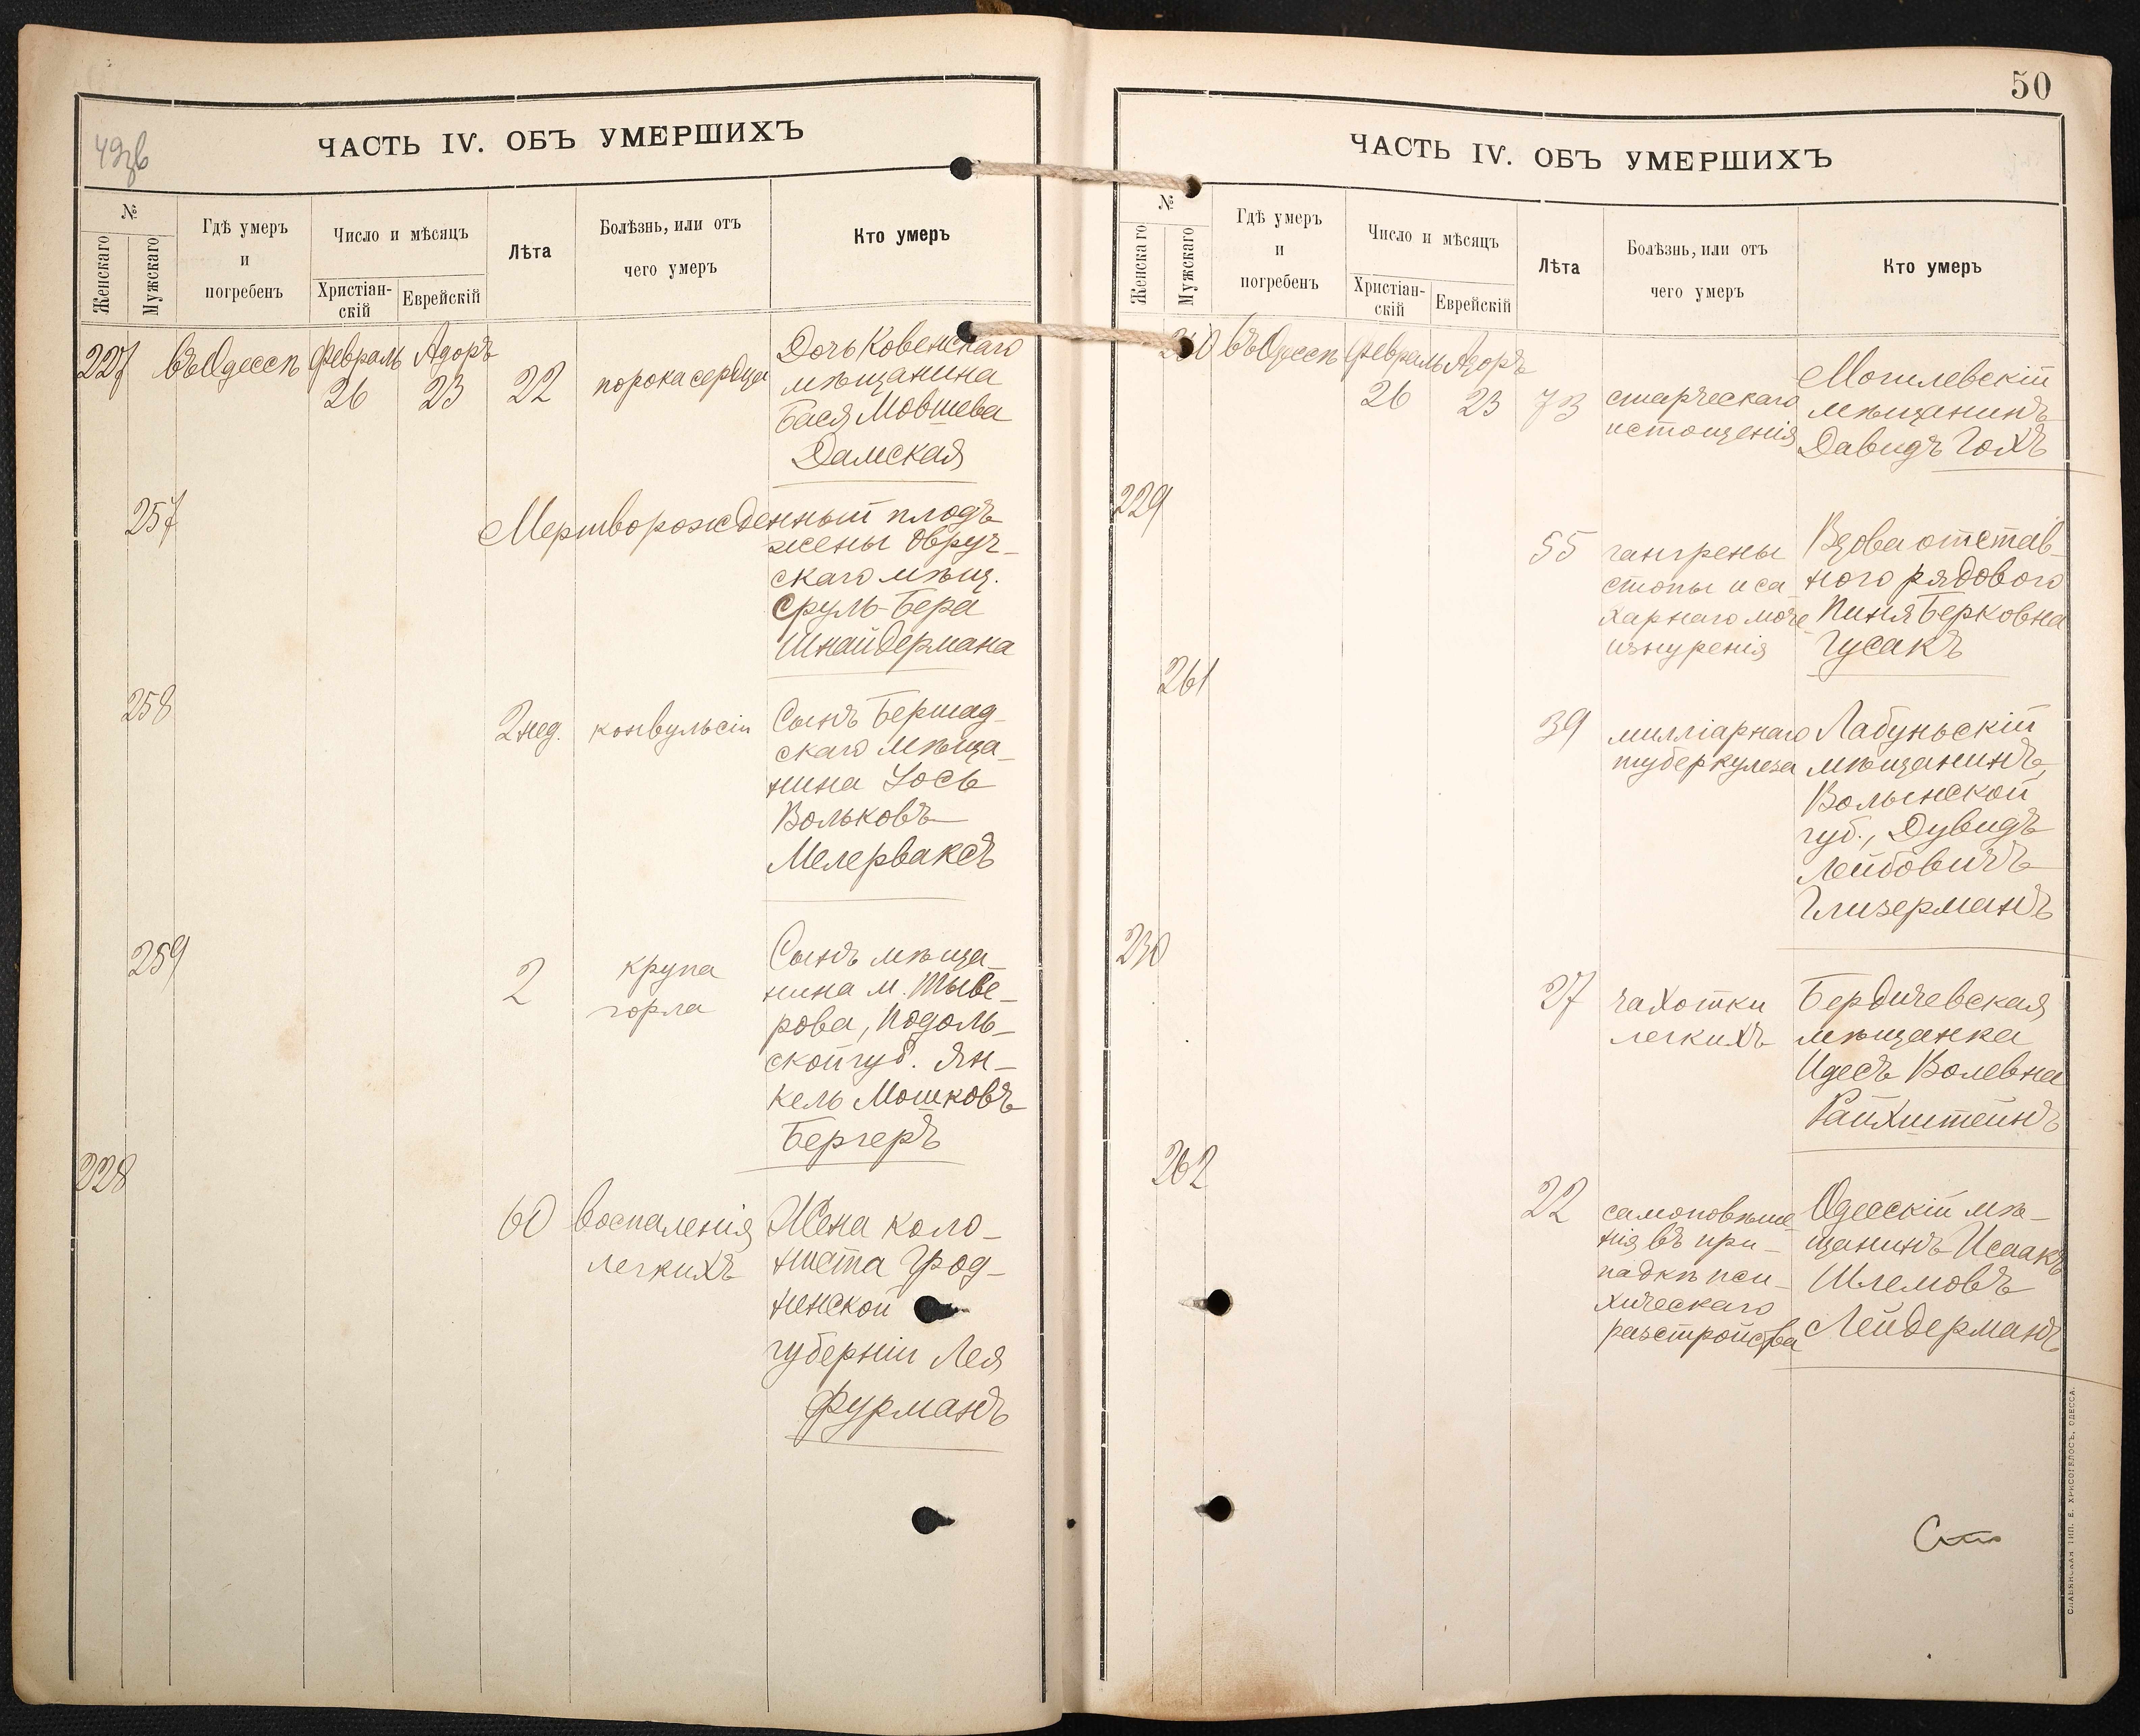 49зв
ЧАСТЬ IV. ОБЪ УМЕРШИХЪ
№
Женскаго
Мужскаго
Гдѣ умеръ
и
погребенъ
Число и мѣсяцъ
Христіан-
скій
Еврейскій
Лѣта
Болѣзнь, или отъ
чего умеръ
Кто умеръ
227 въ Одессѣ Февраль Адоръ
26 23 22 порока сердца
Дочь Ковенскаго
мѣщанина
Бася Мовшева
Дамская
257
Мертворожденный плодъ
жены Овруч-
скаго мѣщ.
Сруль-Бера
Шнайдермана
258
2 нед. конвульсіи
Сынъ Бершад-
скаго мѣща-
нина Іось
Вольковъ
Мелерваксъ
259
2 крупа
горла
Сынъ мѣща-
нина м. Тыве-
рова, Подоль-
ской губ. Ян-
кель Мошковъ
Бергеръ
228
60 воспаленія
легкихъ
Жена коло-
ниста Грод-
ненской
губерніи Лея
Фурманъ
50
ЧАСТЬ IV. ОБЪ УМЕРШИХЪ
№
Женскаго
Мужскаго
Гдѣ умеръ
и
погребенъ
Число и мѣсяцъ
Христіан-
скій
Еврейскій
Лѣта
Болѣзнь, или отъ
чего умеръ
Кто умеръ
260 въ Одессѣ Февраль Адоръ
26 23 73 старческаго
истощенія
Могилевскій
мѣщанинъ
Давидъ Гохъ
229
55 гангрены
стопы и са-
харнаго моче
изнуренія
Вдова отстав-
ного рядового
Пиня Берковна
Гусакъ
261
39 милліарнаго
туберкулеза
Лабуньскій
мѣщанинъ,
Волынской
губ., Дувидъ
Лейбовичъ
Глизерманъ
230
27 чахотки
легкихъ
Бердичевская
мѣщанка
Идесъ Волевна
Райхштейнъ
262
22 самоповѣше-
нія въ при-
падкѣ пси-
хическаго
разстройства
Одесскій мѣ-
щанинъ Исаакъ
Шлемовъ
Лейдерманъ
СЛАВЯНСКАЯ ТИП. Е. ХРИСОГЕЛОСЪ, ОДЕССА.